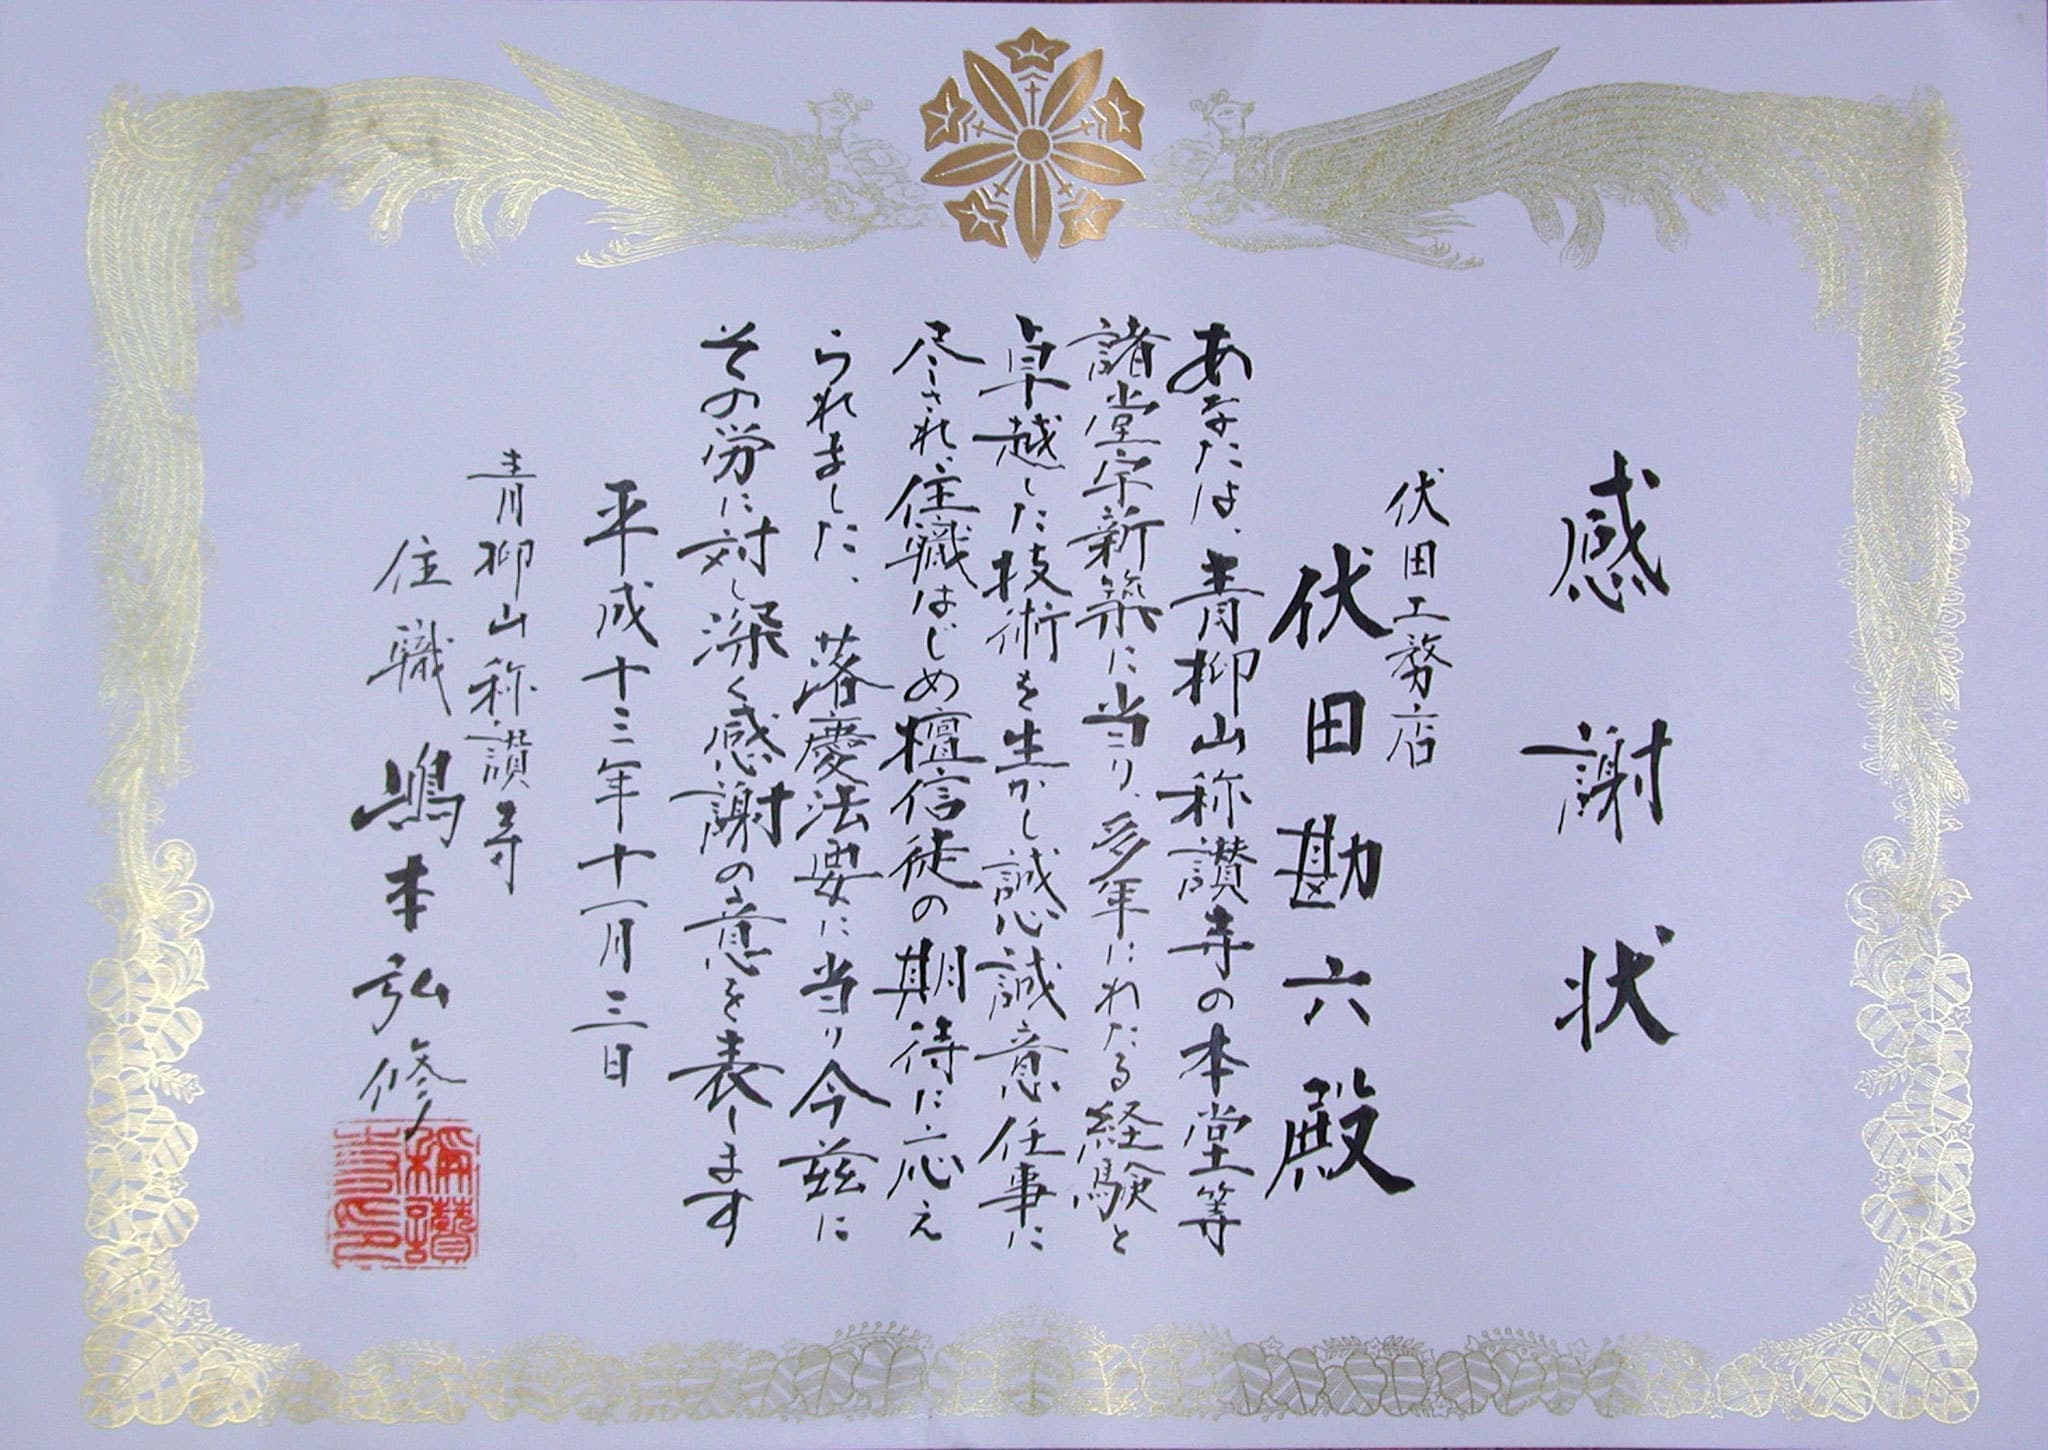 感謝状
伏田工務店
伏田勘六殿
あなたは、青柳山称讃寺の本堂等
諸堂宇新築に当り、多年にわたる経験と
卓越した技術を生かし誠心誠意任事に
尽され、住職はじめ檀信徒の期待に応え
られました、落慶法要に当り今茲に
その労に対し深く感謝の意を表します
平成十三年十一月三日
青柳山称讃寺
住職嶋本弘修
稱讃
寺印